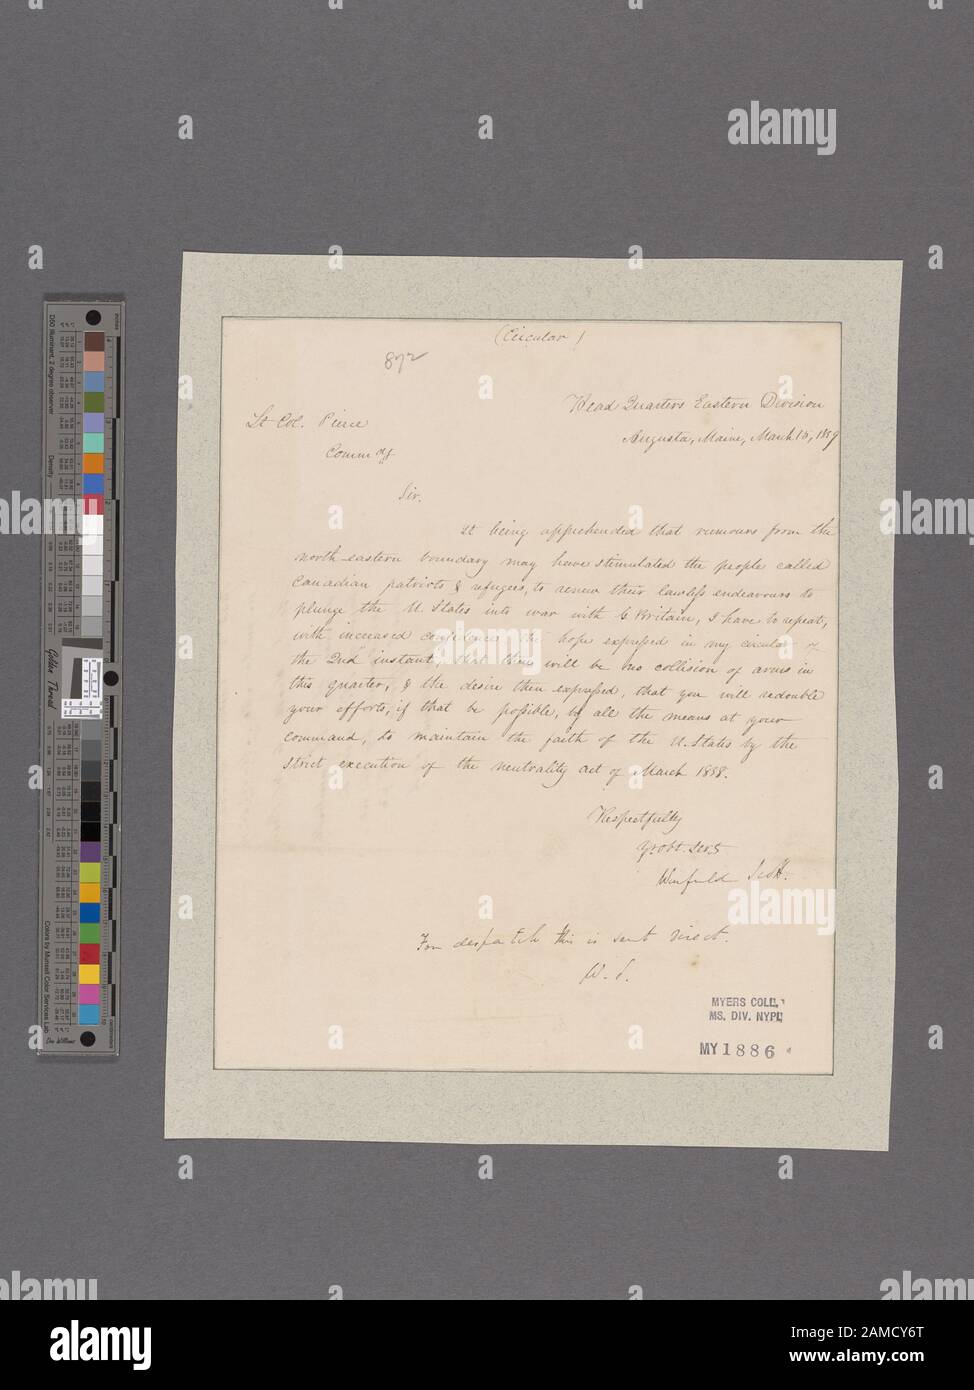 (Circular)
872
Head Quarters Eastern Division
Augusta, Maine, March 15, 1839
Lt Col. Pierce
Comm'g
Sir.
It being apprehended that rumours from the
north-eastern boundary may have stimulated the people called
Canadian patriots & refugees, to renew their lawless endeavours to
plunge the U. States into war with G Britain, I have to repeat,
with increased confidence the hope expressed in my circular of
the 2nd instant, that there will be no collision of arms in
this quarter, & the desire then expressed, that you will redouble
your efforts, if that be possible, by all the means at your
command, to maintain the faith of the U. States by the
strict execution of the neutrality act of March 1838.
Respectfully
Yr. obt. Servt
Winfield Scott.
For despatch this is sent direct.
W. S.
MYERS COLL.
MS. DIV. NYPL
MY 1886
alamy
Image ID: 2AMCY6T
www.alamy.com